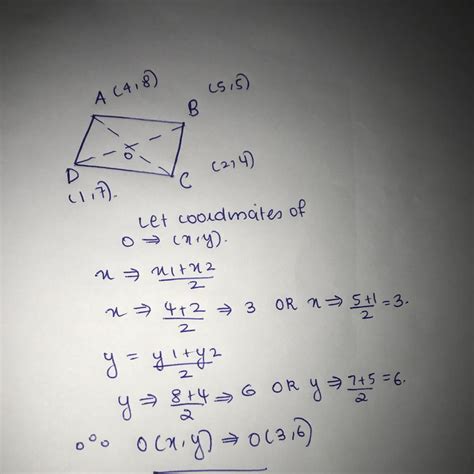 A (4,8)
(5,5)
B
O
D
C
(2,4)
(1,7).
Let coordinates of
O ⇒ (x,y).
x ⇒ x1+x2/2
x ⇒ 4+2/2 ⇒ 3 OR x ⇒ 5+1/2 = 3.
y = y1+y2/2
y ⇒ 8+4/2 ⇒ 6 OR y ⇒ 7+5/2 = 6.
∴ O(x,y) ⇒ O(3,6)